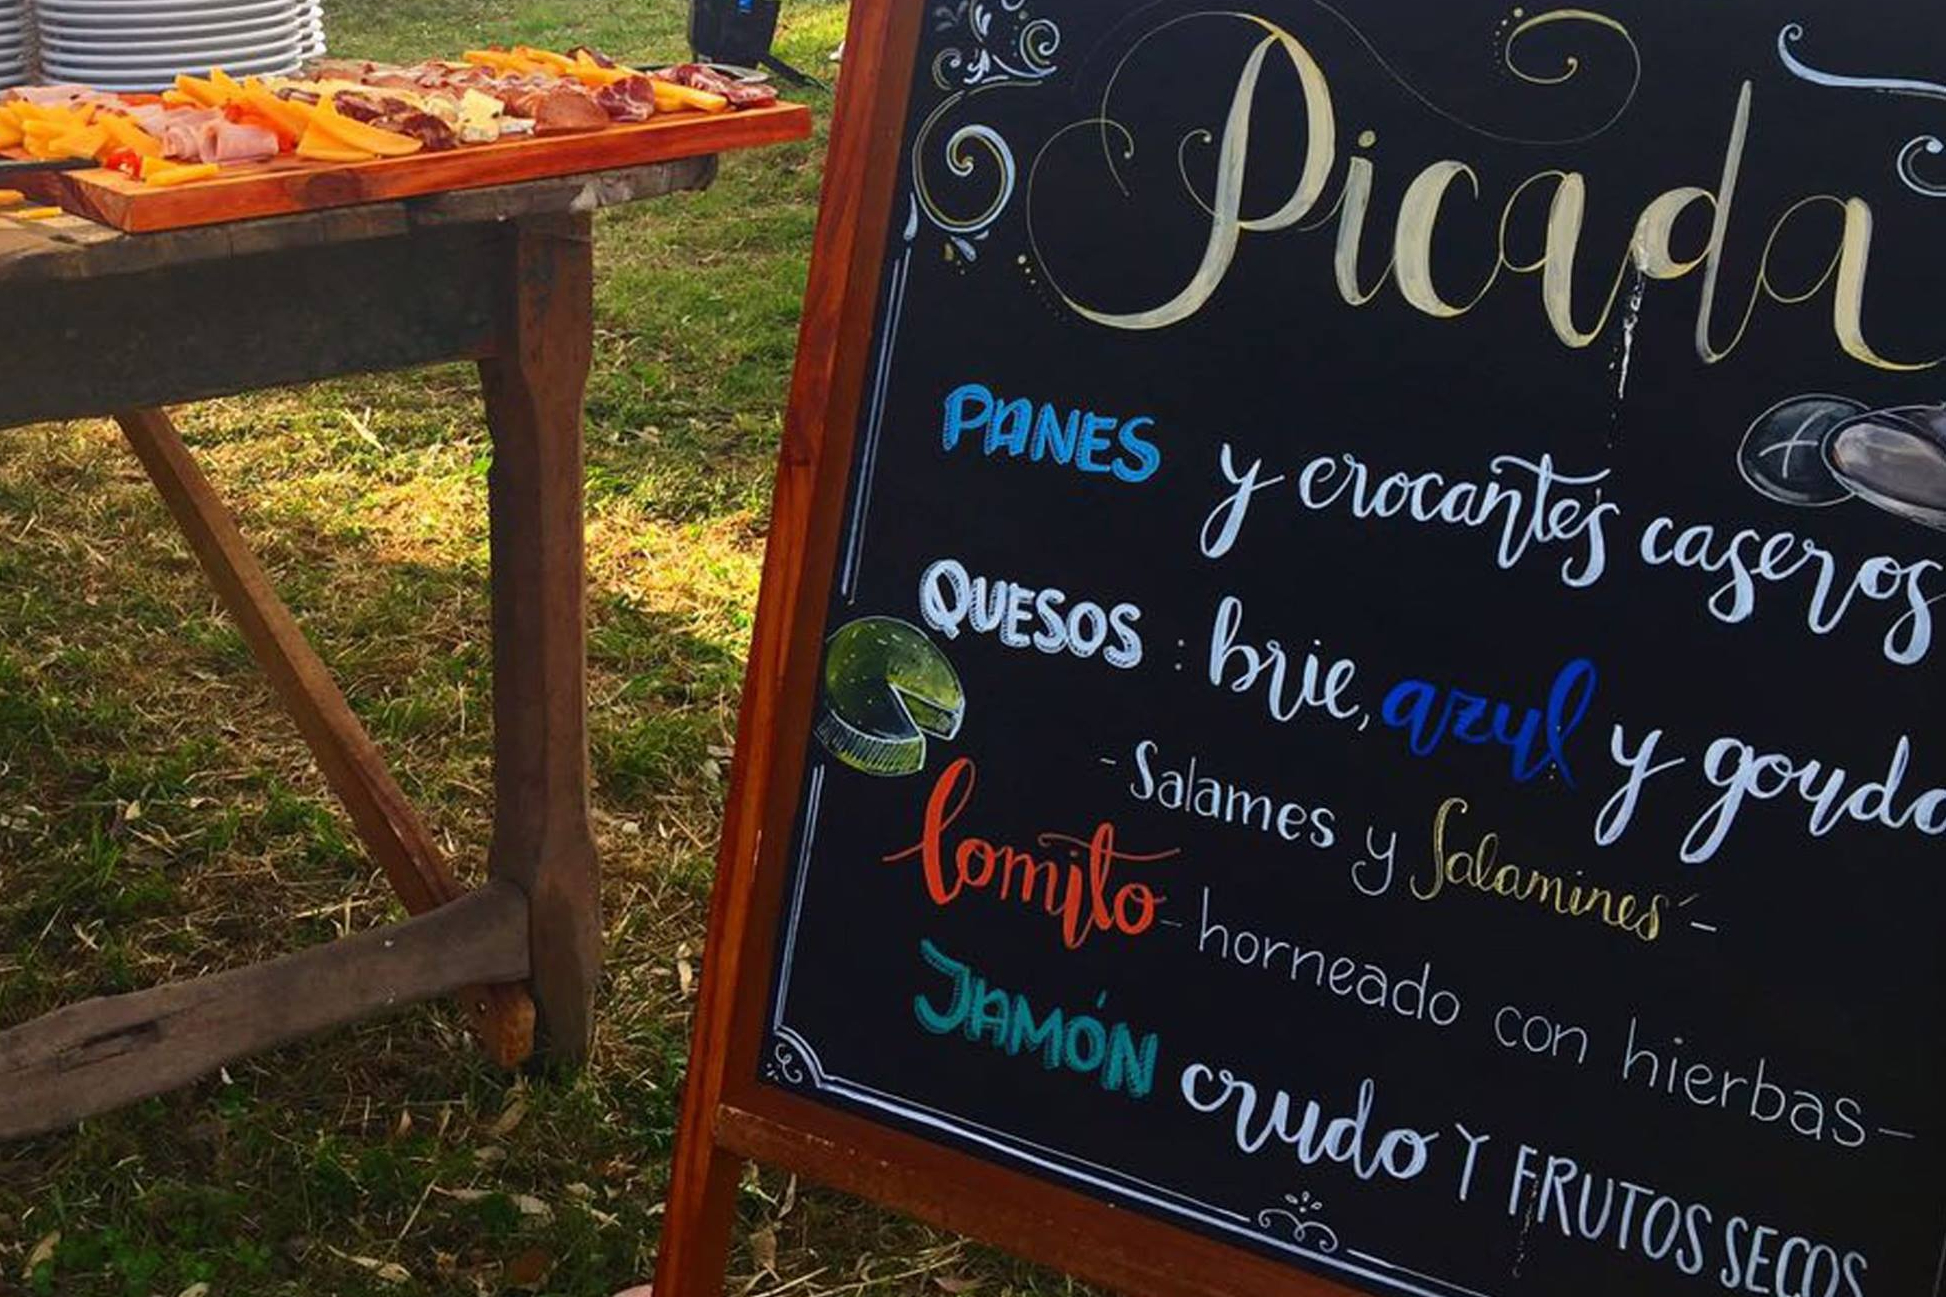 Picada
PANES y crocantes caseros
QUESOS : brie, azul y gouda
- Salames y Salamines -
lomito - horneado con hierbas -
JAMÓN crudo Y FRUTOS SECOS